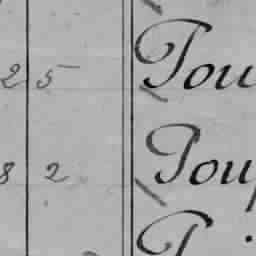 25 Tou
82 Toup